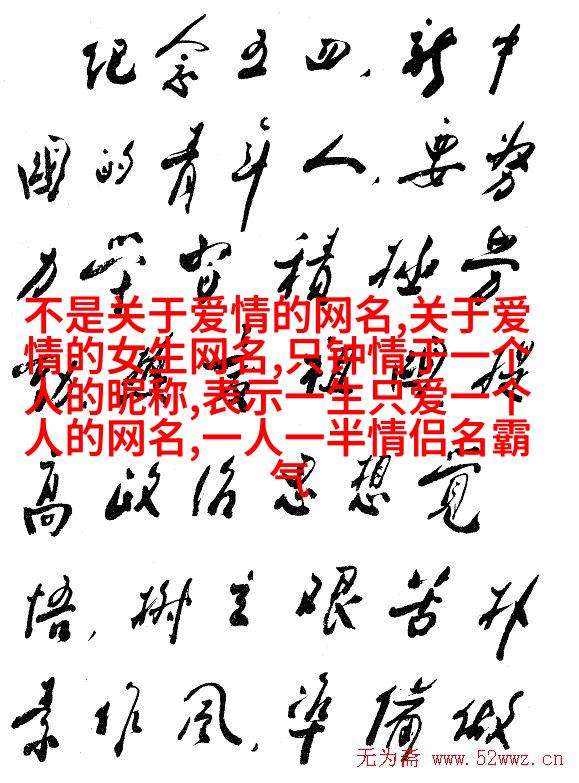 纪念五四,新中
國的青年人,要努
力学習積極劳
不是关于爱情的网名,关于爱
情的女生网名,只钟情于一个
人的昵称,表示一生只爱一个
人的网名,一人一半情侣名霸
气
高政治思想覚
悟,树立艰苦朴
素作风,準備做
无为斋 www.52wwz.cn